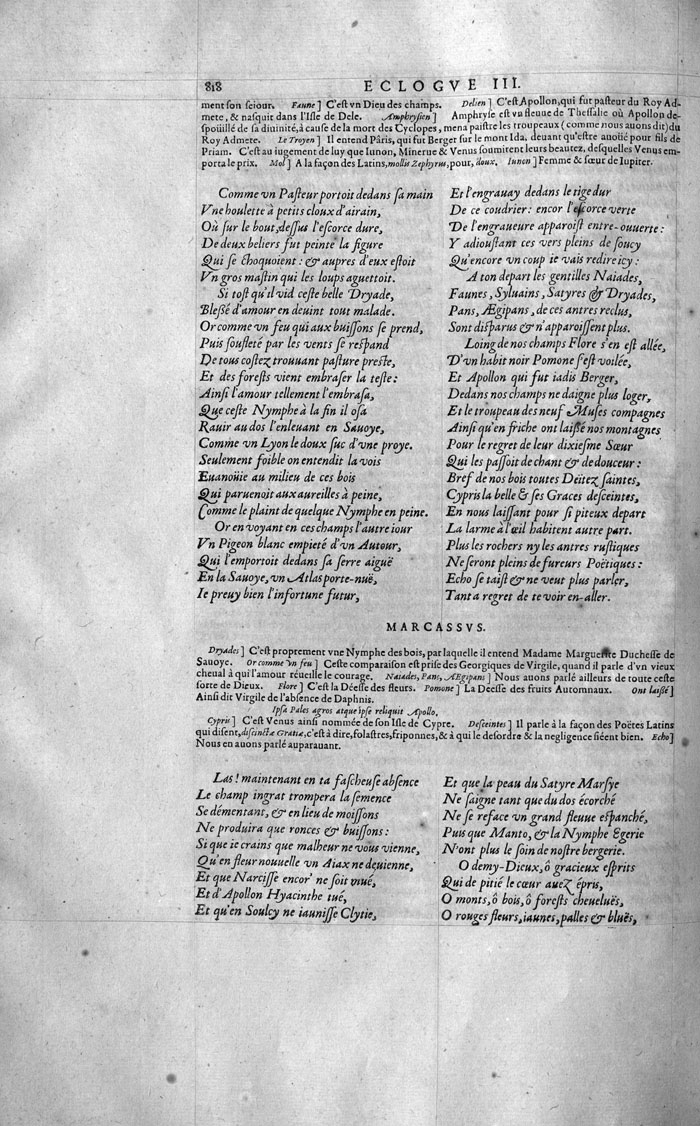 818 ECLOGVE III.
ment son seiour. Faune] C'est vn Dieu des champs. Delien] C'est Apollon, qui fut pasteur du Roy Ad-
mete, & nasquit dans l'Isle de Dele. Amphrysien] Amphryse est vn fleuue de Thessalie où Apollon de-
spoüillé de sa diuinité, à cause de la mort des Cyclopes, mena paistre les troupeaux (comme nous auons dit) du
Roy Admete. Le Troyen] Il entend Pâris, qui fut Berger sur le mont Ida, deuant qu'estre auoüé pour fils de
Priam. C'est au iugement de luy que Iunon, Minerue & Venus soumirent leurs beautez, desquelles Venus em-
porta le prix. Mol] A la façon des Latins, mollis Zephyrus, pour, doux. Iunon] Femme & sœur de Iupiter.
Comme vn Pasteur portoit dedans sa main
Vne houlette à petits cloux d'airain,
Où sur le bout, dessus l'escorce dure,
De deux beliers fut peinte la figure
Qui se choquoient : & aupres d'eux estoit
Vn gros mastin qui les loups aguettoit.
Si tost qu'il vid ceste belle Dryade,
Blessé d'amour en deuint tout malade.
Or comme vn feu qui aux buissons se prend,
Puis soufleté par les vents se respand
De tous costez trouuant pasture preste,
Et des forests vient embraser la teste :
Ainsi l'amour tellement l'embrasa,
Que ceste Nymphe à la fin il osa
Rauir au dos l'enleuant en Sauoye,
Comme vn Lyon le doux suc d'vne proye.
Seulement foible on entendit la vois
Euanoüie au milieu de ces bois
Qui paruenoit aux aureilles à peine,
Comme le plaint de quelque Nymphe en peine.
Or en voyant en ces champs l'autre iour
Vn Pigeon blanc empieté d'vn Autour,
Qui l'emportoit dedans sa serre aiguë
En la Sauoye, vn Atlas porte-nuë,
Ie preuy bien l'infortune futur,
Et l'engrauay dedans le tige dur
De ce coudrier : encor l'escorce verte
De l'engraueure apparoist entre-ouuerte :
Y adioustant ces vers pleins de soucy
Qu'encore vn coup ie vais redire icy :
A ton depart les gentilles Naiades,
Faunes, Syluains, Satyres & Dryades,
Pans, Ægipans, de ces antres reclus,
Sont disparus & n'apparoissent plus.
Loing de nos champs Flore s'en est allée,
D'vn habit noir Pomone s'est voilée,
Et Apollon qui fut iadis Berger,
Dedans nos champs ne daigne plus loger,
Et le troupeau des neuf Muses compagnes
Ainsi qu'en friche ont laissé nos montagnes
Pour le regret de leur dixiesme Sœur
Qui les passoit de chant & de douceur :
Bref de nos bois toutes Deïtez saintes,
Cypris la belle & ses Graces desceintes,
En nous laissant pour si piteux depart
La larme à l'œil habitent autre part.
Plus les rochers ny les antres rustiques
Ne seront pleins de fureurs Poëtiques :
Echo se taist & ne veut plus parler,
Tant a regret de te voir en-aller.
MARCASSVS.
Dryades] C'est proprement vne Nymphe des bois, par laquelle il entend Madame Marguerite Duchesse de
Sauoye. Or comme vn feu] Ceste comparaison est prise des Georgiques de Virgile, quand il parle d'vn vieux
cheual à qui l'amour réueille le courage. Naiades, Pans, Ægipans] Nous auons parlé ailleurs de toute ceste
sorte de Dieux. Flore] C'est la Déesse des fleurs. Pomone] La Déesse des fruits Automnaux. Ont laissé]
Ainsi dit Virgile de l'absence de Daphnis.
Ipsa Pales agros atque ipse reliquit Apollo.
Cypris] C'est Venus ainsi nommée de son Isle de Cypre. Desceintes] Il parle à la façon des Poëtes Latins
qui disent, discinctæ Gratiæ, c'est à dire, folastres, friponnes, & à qui le desordre & la negligence siéent bien. Echo]
Nous en auons parlé auparauant.
Las ! maintenant en ta fascheuse absence
Le champ ingrat trompera la semence
Se démentant, & en lieu de moissons
Ne produira que ronces & buissons :
Si que ie crains que malheur ne vous vienne,
Qu'en fleur nouuelle vn Aiax ne deuienne,
Et que Narcisse encor' ne soit mué,
Et d'Apollon Hyacinthe tué,
Et qu'en Soulcy ne iaunisse Clytie,
Et que la peau du Satyre Marsye
Ne saigne tant que du dos écorché
Ne se reface vn grand fleuue espanché,
Puis que Manto, & la Nymphe Egerie
N'ont plus le soin de nostre bergerie.
O demy-Dieux, ô gracieux esprits
Qui de pitié le cœur auez épris,
O monts, ô bois, ô forests cheueluës,
O rouges fleurs, iaunes, palles & bluës,